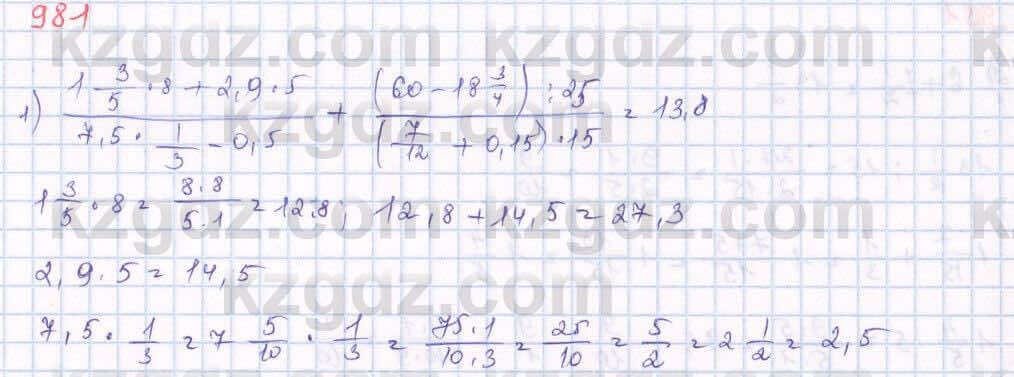 981
1) (1 3/5 · 8 + 2,9 · 5) / (7,5 · 1/3 - 0,5) + ((60 - 18 3/4) : 25) / ((7/12 + 0,15) · 15) = 13,8
1 3/5 · 8 = (8 · 8)/(5 · 1) = 12.8; 12,8 + 14,5 = 27,3
2,9 · 5 = 14,5
7,5 · 1/3 = 7 5/10 · 1/3 = (75 · 1)/(10 · 3) = 25/10 = 5/2 = 2 1/2 = 2,5
kzgdz.com kzgdz.com
kzgdz.com
kzgdz.com
kzgdz.com